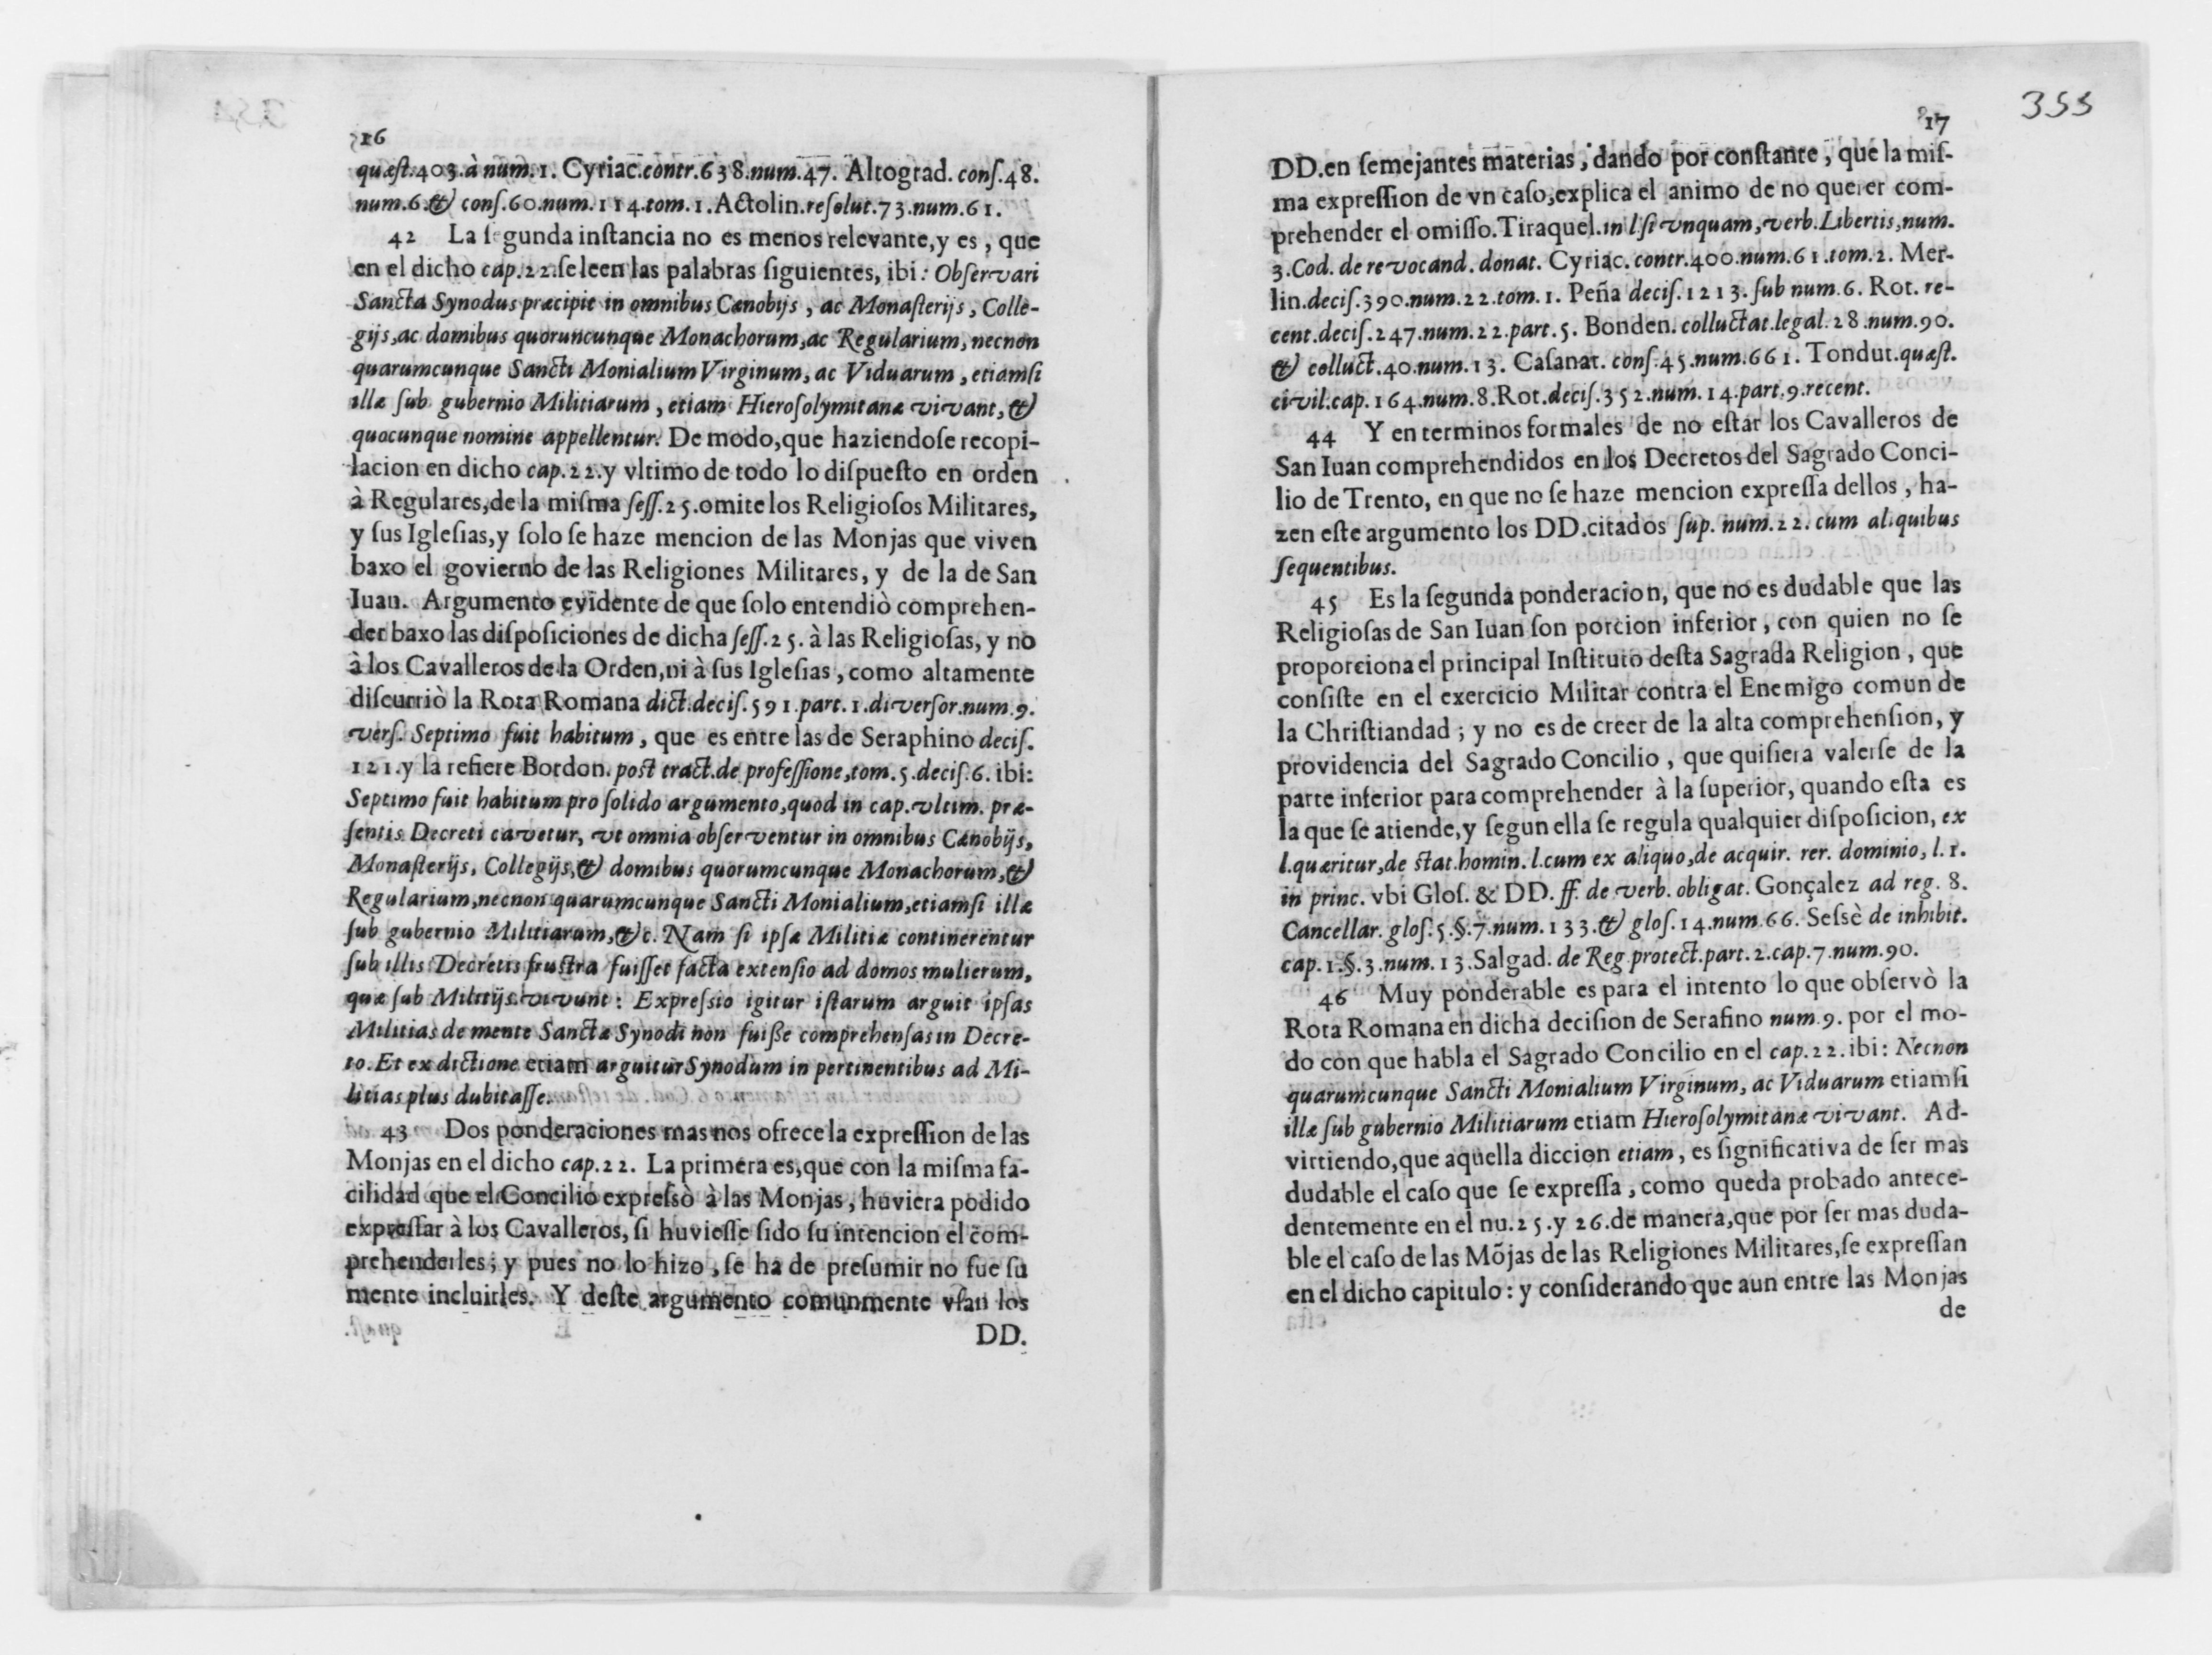 16
quæſt.403.à num.1. Cyriac.contr.638.num.47. Altograd. conſ.48.
num.6.& conſ.60.num.114.tom.1.Actolin.reſolut.73.num.61.
42 La ſegunda inſtancia no es menos relevante,y es, que
en el dicho cap.22.ſe leen las palabras ſiguientes, ibi: Obſervari
Sancta Synodus præcipit in omnibus Cœnobijs, ac Monaſterijs, Colle-
gijs,ac domibus quoruncunque Monachorum,ac Regularium,necnon
quarumcunque Sancti Monialium Virginum, ac Viduarum, etiamſi
illæ ſub gubernio Militiarum, etiam Hieroſolymitanæ vivant, &
quocunque nomine appellentur. De modo,que haziendoſe recopi-
lacion en dicho cap.22.y vltimo de todo lo diſpueſto en orden
à Regulares,de la miſma ſeſſ.25.omite los Religioſos Militares,
y ſus Igleſias,y ſolo ſe haze mencion de las Monjas que viven
baxo el govierno de las Religiones Militares, y de la de San
Iuan. Argumento evidente de que ſolo entendiò comprehen-
der baxo las diſpoſiciones de dicha ſeſſ.25. à las Religioſas, y no
à los Cavalleros de la Orden,ni à ſus Igleſias, como altamente
diſcurriò la Rota Romana dict.deciſ.591.part.1.diverſor.num.9.
verſ. Septimo fuit habitum, que es entre las de Seraphino deciſ.
121.y la refiere Bordon.post tract.de profeſſione,tom.5.deciſ.6. ibi:
Septimo fuit habitum pro ſolido argumento,quod in cap.vltim. præ-
ſentis Decreti cavetur, vt omnia obſerventur in omnibus Cœnobijs,
Monaſterijs, Collegijs,& domibus quorumcunque Monachorum,&
Regularium,necnon quarumcunque Sancti Monialium,etiamſi illæ
ſub gubernio Militiarum,&c. Nam ſi ipſæ Militiæ continerentur
ſub illis Decretis frustra fuiſſet facta extenſio ad domos mulierum,
quæ ſub Militijs vivunt: Expreſsio igitur iſtarum arguit ipſas
Militias de mente Sanctæ Synodi non fuiße comprehenſas in Decre-
to. Et ex dictione etiam arguitur Synodum in pertinentibus ad Mi-
litias plus dubitaſſe.
43 Dos ponderaciones mas nos ofrece la expreſſion de las
Monjas en el dicho cap.22. La primera es,que con la miſma fa-
cilidad que el Concilio expreſsò à las Monjas, huviera podido
expreſſar à los Cavalleros, ſi huvieſſe ſido ſu intencion el com-
prehenderles; y pues no lo hizo, ſe ha de preſumir no fue ſu
mente incluirles. Y deſte argumento comunmente vſan los
DD.
353
17
DD.en ſemejantes materias, dando por conſtante, que la miſ-
ma expreſſion de vn caſo,explica el animo de no querer com-
prehender el omiſſo.Tiraquel.in l.ſi vnquam,verb.Libertis,num.
3.Cod. de revocand. donat. Cyriac. contr.400.num.61.tom.2. Mer-
lin.deciſ.390.num.22.tom.1. Peña deciſ.1213.ſub num.6. Rot. re-
cent.deciſ.247.num.22.part.5. Bonden. colluctat.legal.28.num.90.
& colluct.40.num.13. Caſanat. conſ.45.num.661. Tondut.quæſt.
civil.cap.164.num.8.Rot.deciſ.352.num.14.part.9.recent.
44 Y en terminos formales de no eſtàr los Cavalleros de
San Iuan comprehendidos en los Decretos del Sagrado Conci-
lio de Trento, en que no ſe haze mencion expreſſa dellos, ha-
zen eſte argumento los DD.citados ſup. num.22. cum aliquibus
ſequentibus.
45 Es la ſegunda ponderacion, que no es dudable que las
Religioſas de San Iuan ſon porcion inferior, con quien no ſe
proporciona el principal Inſtituto deſta Sagrada Religion, que
conſiſte en el exercicio Militar contra el Enemigo comun de
la Chriſtiandad; y no es de creer de la alta comprehenſion, y
providencia del Sagrado Concilio, que quiſiera valerſe de la
parte inferior para comprehender à la ſuperior, quando eſta es
la que ſe atiende,y ſegun ella ſe regula qualquier diſpoſicion, ex
l.quæritur,de stat.homin. l.cum ex aliquo,de acquir. rer. dominio, l.1.
in princ. vbi Gloſ. & DD. ff. de verb. obligat. Gonçalez ad reg. 8.
Cancellar. gloſ.5.§.7.num.133.& gloſ.14.num.66. Seſsè de inhibit.
cap.1.§.3.num.13.Salgad. de Reg.protect.part.2.cap.7.num.90.
46 Muy ponderable es para el intento lo que obſervò la
Rota Romana en dicha deciſion de Serafino num.9. por el mo-
do con que habla el Sagrado Concilio en el cap.22.ibi: Necnon
quarumcunque Sancti Monialium Virginum, ac Viduarum etiamſi
illæ ſub gubernio Militiarum etiam Hieroſolymitanæ vivant. Ad-
virtiendo,que aquella diccion etiam, es ſignificativa de ſer mas
dudable el caſo que ſe expreſſa, como queda probado antece-
dentemente en el nu.25.y 26.de manera,que por ſer mas duda-
ble el caſo de las Mõjas de las Religiones Militares,ſe expreſſan
en el dicho capitulo: y conſiderando que aun entre las Monjas
de